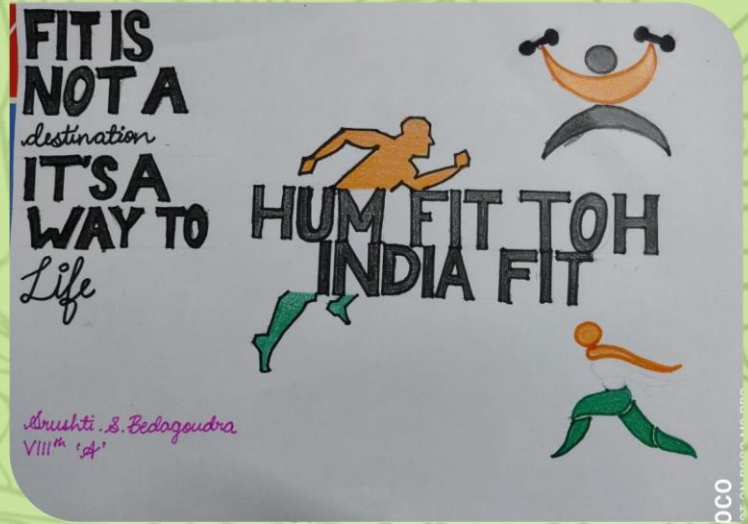 FIT IS
NOT A
destination
IT'S A
WAY TO
Life
HUM FIT TOH
INDIA FIT
Srushti. S. Bedagoudra
VIIIth 'A'
OCO